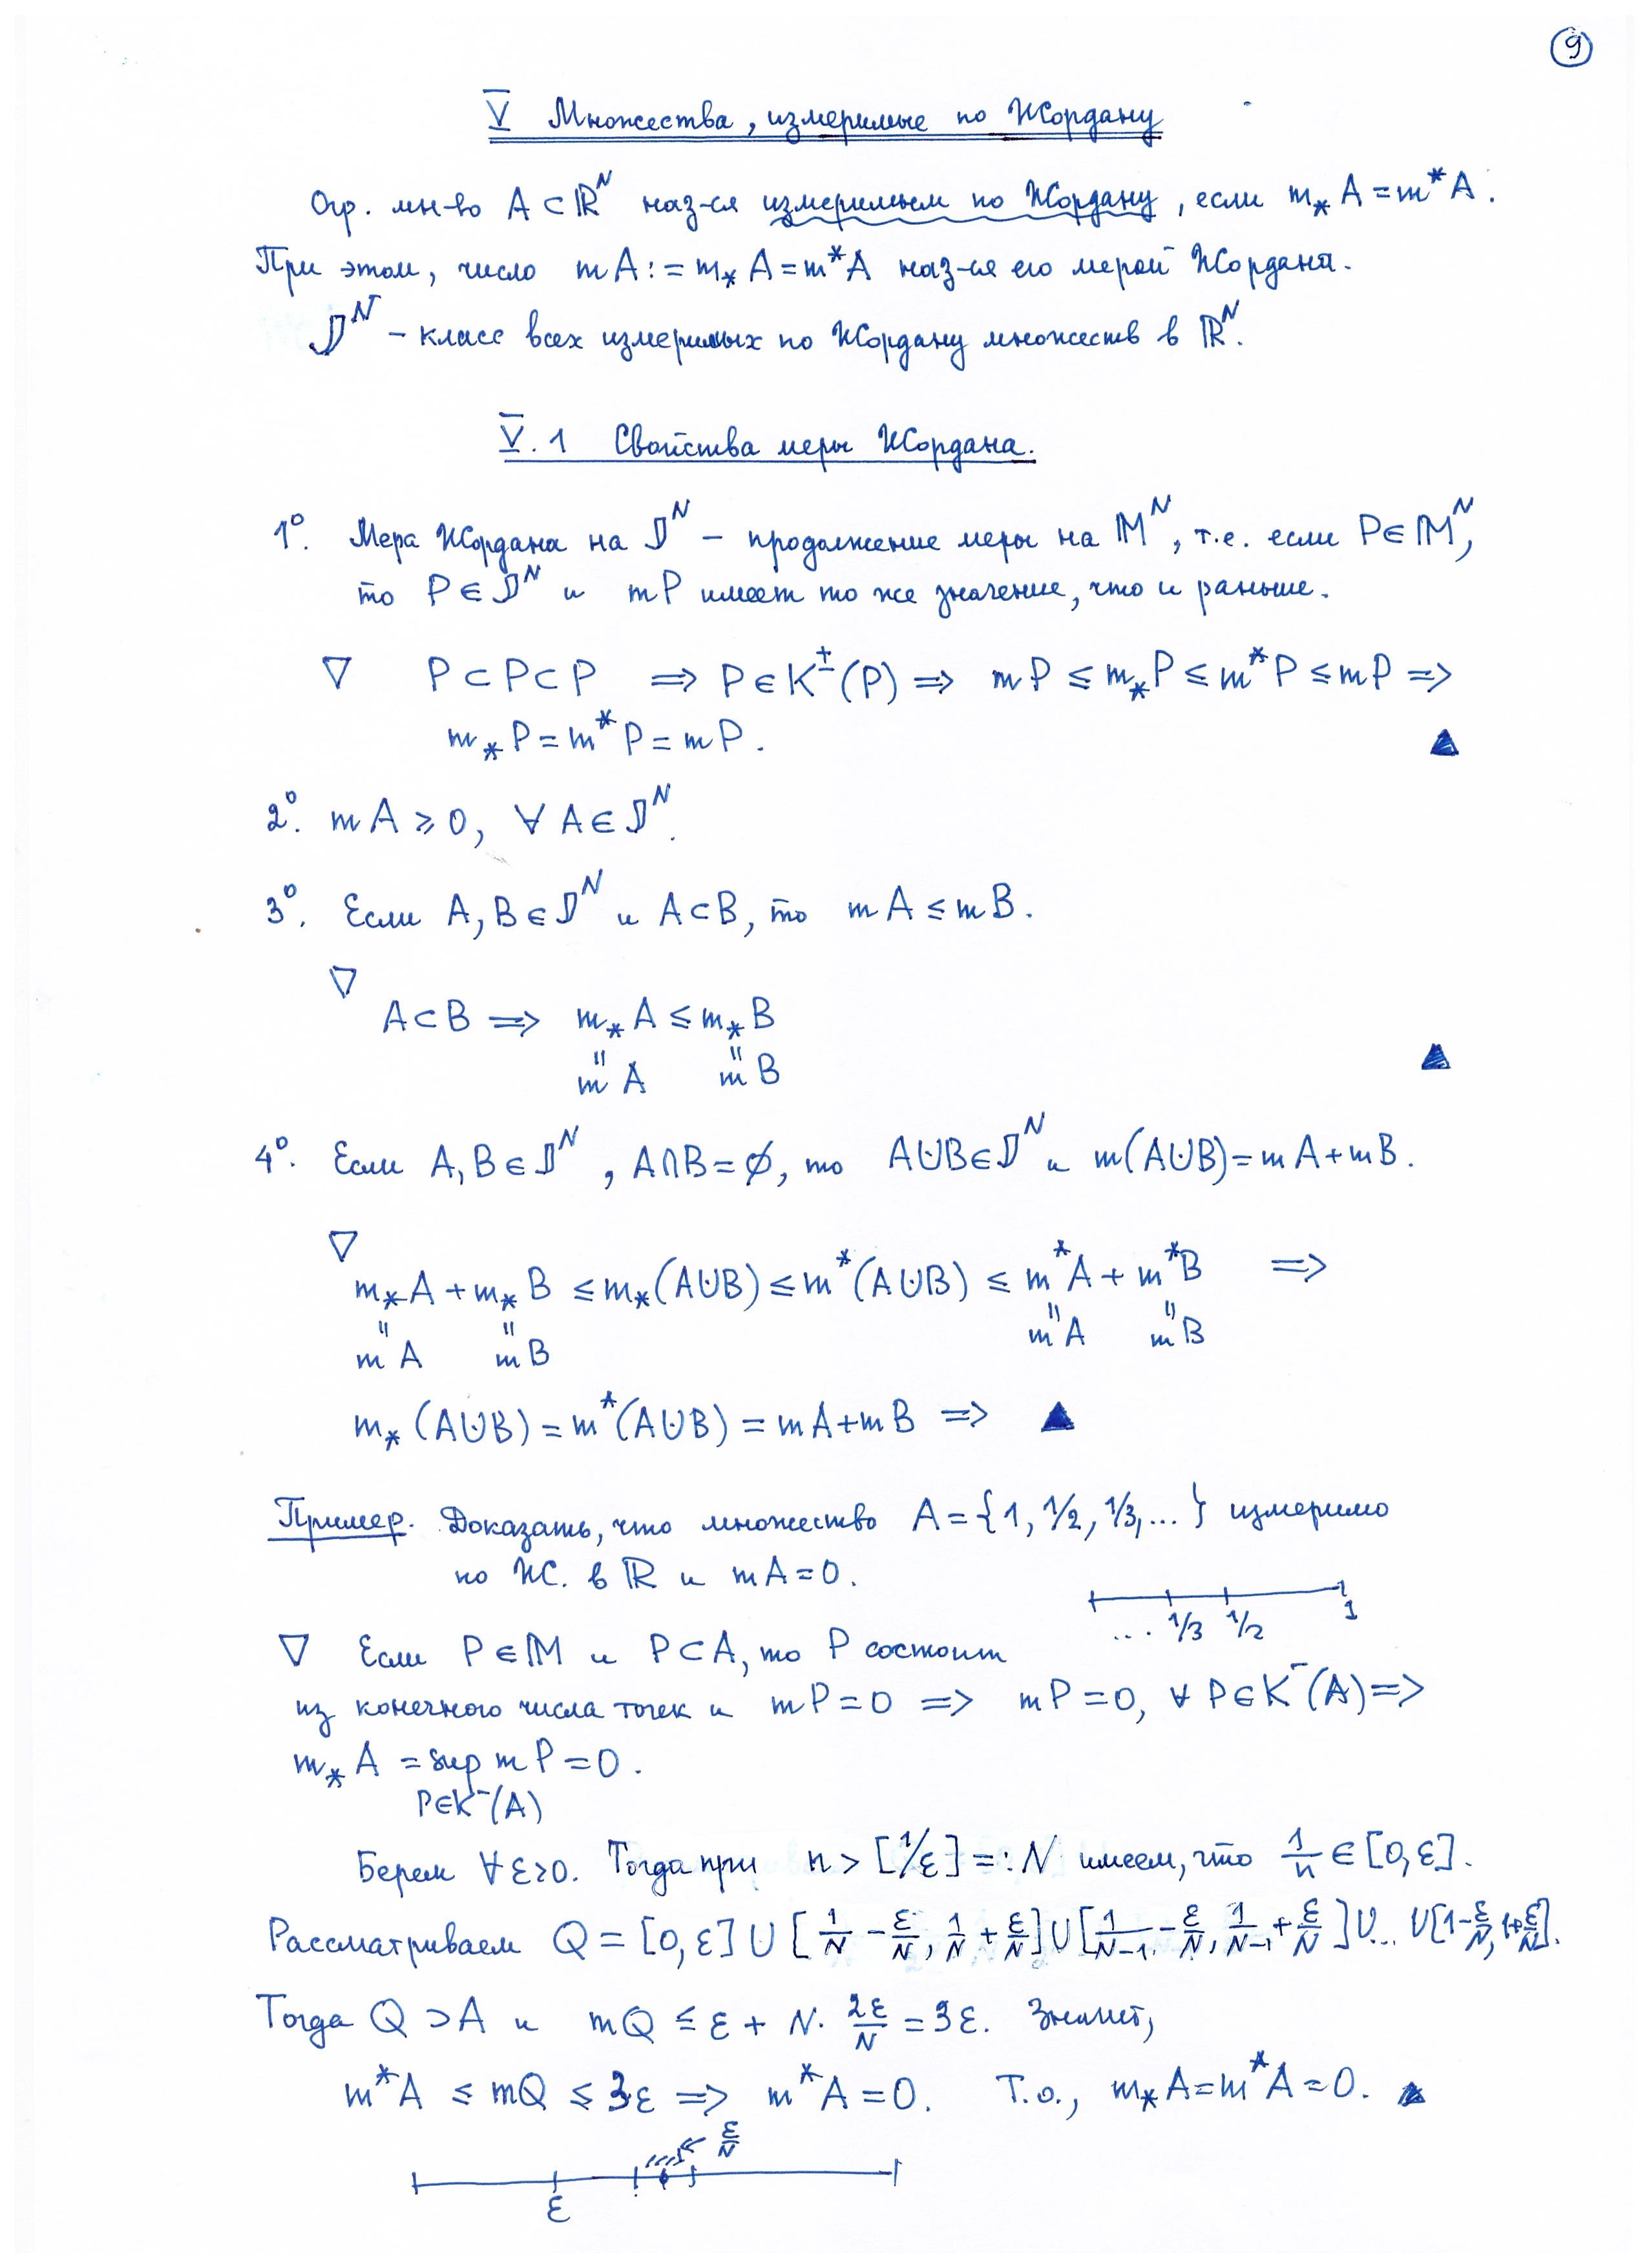 9
V Множества, измеримые по Жордану
Огр. мн-во A ⊂ ℝᴺ наз-ся измеримым по Жордану, если m⁎A = m*A.
При этом, число mA := m⁎A = m*A наз-ся его мерой Жордана.
𝕁ᴺ – класс всех измеримых по Жордану множеств в ℝᴺ.
V.1 Свойства меры Жордана.
1°. Мера Жордана на 𝕁ᴺ – продолжение меры на 𝕄ᴺ, т.е. если P ∈ 𝕄ᴺ,
то P ∈ 𝕁ᴺ и mP имеет то же значение, что и раньше.
▽ P ⊂ P ⊂ P ⇒ P ∈ K^±(P) ⇒ mP ≤ m⁎P ≤ m*P ≤ mP ⇒
m⁎P = m*P = mP. ▲
2°. mA ⩾ 0, ∀ A ∈ 𝕁ᴺ.
3°. Если A, B ∈ 𝕁ᴺ и A ⊂ B, то mA ≤ mB.
▽
A ⊂ B ⇒ m⁎A ≤ m⁎B
‖ ‖
mA mB ▲
4°. Если A, B ∈ 𝕁ᴺ, A ∩ B = ∅, то A ⊍ B ∈ 𝕁ᴺ и m(A ⊍ B) = mA + mB.
▽
m⁎A + m⁎B ≤ m⁎(A ⊍ B) ≤ m*(A ⊍ B) ≤ m*A + m*B ⇒
‖ ‖ ‖ ‖
mA mB mA mB
m⁎(A ⊍ B) = m*(A ⊍ B) = mA + mB ⇒ ▲
Пример. Доказать, что множество A = {1, 1/2, 1/3, ...} измеримо
по Ж. в ℝ и mA = 0.
... 1/3 1/2 1
▽ Если P ∈ 𝕄 и P ⊂ A, то P состоит
из конечного числа точек и mP = 0 ⇒ mP = 0, ∀ P ∈ K⁻(A) ⇒
m⁎A = sup mP = 0.
P ∈ K⁻(A)
Берем ∀ ε > 0. Тогда при n > [1/ε] =: N имеем, что 1/n ∈ [0, ε].
Рассматриваем Q = [0, ε] ∪ [1/N - ε/N, 1/N + ε/N] ∪ [1/(N-1) - ε/N, 1/(N-1) + ε/N] ∪ ... ∪ [1 - ε/N, 1 + ε/N].
Тогда Q ⊃ A и mQ ≤ ε + N · 2ε/N = 3ε. Значит,
m*A ≤ mQ ≤ 3ε ⇒ m*A = 0. Т.о., m⁎A = m*A = 0. ▲
ε/N
ε